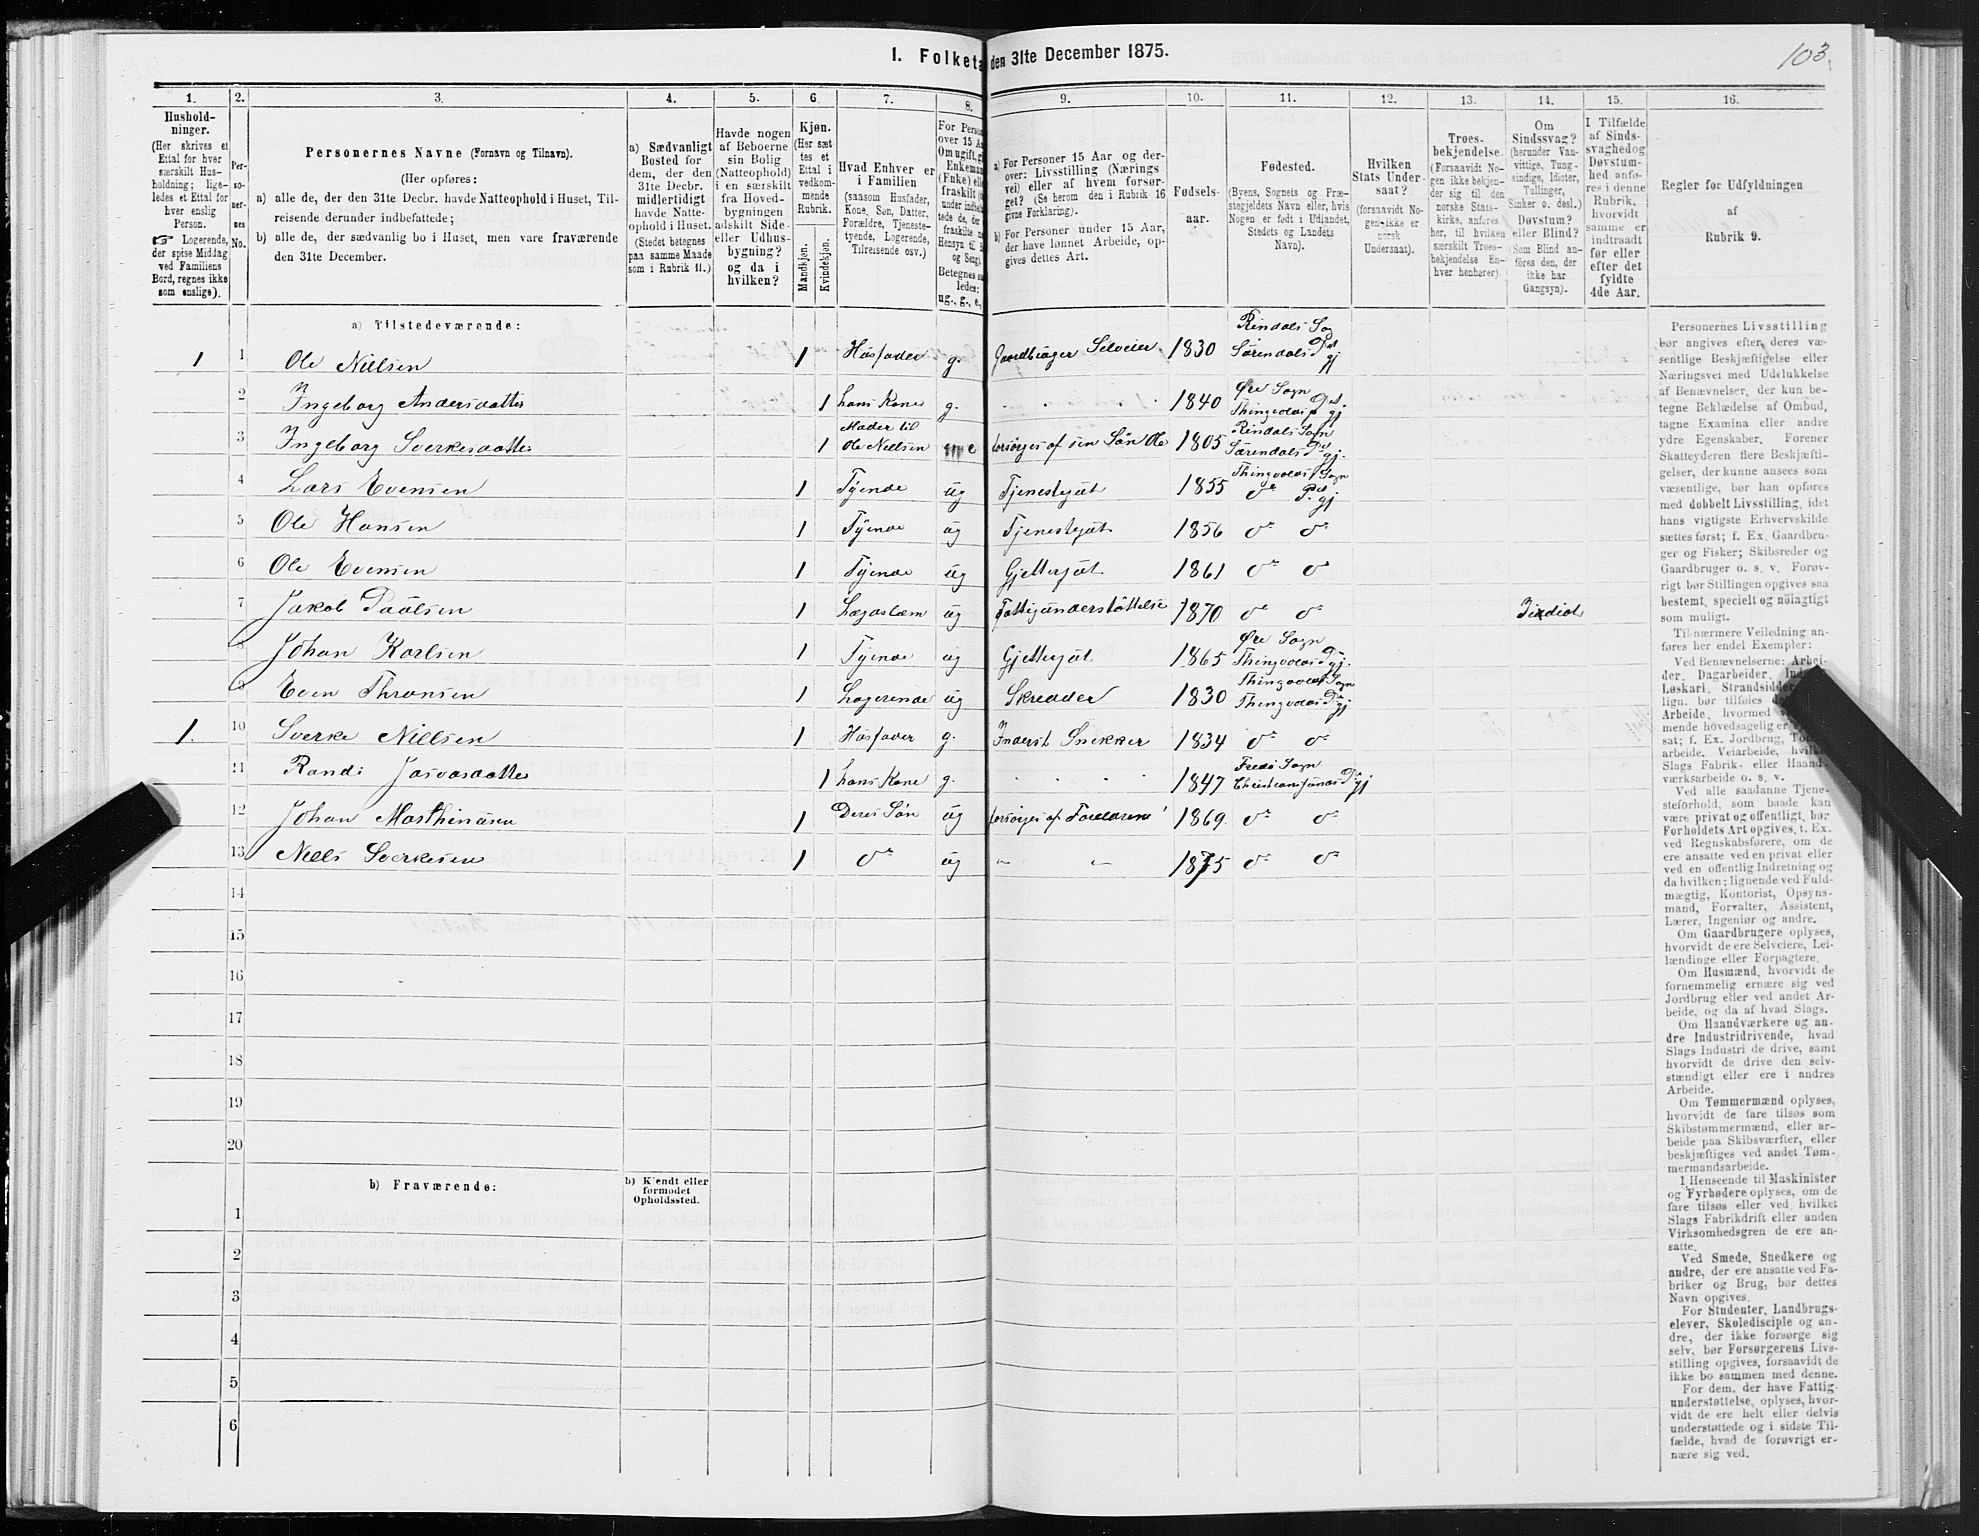 103.
I. Folketæ den 31te December 1875.
1. 2. 3. 4. 5. 6. 7. 8. 9. 10. 11. 12. 13. 14. 15. 16.
Hushold-
ninger.
(Her skrives et
Ettal for hver
særskilt Hus-
holdning; lige-
ledes et Ettal for
hver enslig
Person.
☞ Logerende,
der spise Middag
ved Familiens
Bord, regnes ikke
som enslige).
Per-
so-
ner-
nes
No.
Personernes Navne (Fornavn og Tilnavn).
(Her opføres:
a) alle de, der den 31te Decbr. havde Natteophold i Huset, Til-
reisende derunder indbefattede;
b) alle de, der sædvanlig bo i Huset, men vare fraværende
den 31te December.
a) Sædvanligt
Bosted for
dem, der den
31te Decbr.
midlertidigt
havde Natte-
ophold i Huset.
(Stedet betegnes
paa samme Maade
som i Rubrik 11.)
Havde nogen
af Beboerne
sin Bolig
(Natteophold)
i en særskilt
fra Hoved-
bygningen
adskilt Side-
eller Udhus-
bygning?
og da i
hvilken?
Kjøn.
(Her sæt
tes et
Ettal i
vedkom-
mende
Rubrik.
Mandkjøn.
Kvindekjøn.
Hvad Enhver er
i Familien
(saasom Husfader,
Kone, Søn, Datter,
Forældre, Tjeneste-
tyende, Logerende,
Tilreisende osv.)
For Perso
over 15 A
Om ugift, g
Enkeman
(Enke) ell
fraskilt
tede de, de
fraskilte
Hensyn til
og Seng
Betegnes sa
ledes:
ug., g., e.,
a) For Personer 15 Aar og der-
over: Livsstilling (Nærings-
vei) eller af hvem forsør-
get? (Se herom den i Rubrik 16
givne Forklaring).
b) For Personer under 15 Aar,
der have lønnet Arbeide, op-
gives dettes Art.
Fødsels-
aar.
Fødested.
(Byens, Sognets og Præ-
stegjeldets Navn eller, hvis
Nogen er født i Udlandet,
Stedets og Landets
Navn).
Hvilken
Stats Under-
saat?
(forsaavidt No-
gen ikke er
norsk
Undersaat).
Troes-
bekjendelse.
(Forsaavidt No-
gen ikke bekjen-
der sig til den
norske Stats-
kirke, anføres
her, til hvilken
særskilt Troes-
bekjendelse En-
hver henhører).
Om
Sindssvag?
(herunder Van-
vittige, Tung-
sindige, Idioter,
Tullinger,
Sinker o. desl.)
Døvstum?
eller Blind?
(Som Blind an-
føres den, der
ikke har
Gangsyn).
I Tilfælde
af Sinds-
svaghed og
Døvstum-
hed anfø-
res i denne
Rubrik,
hvorvidt
samme er
indtraadt
før eller
efter det
fyldte
4de Aar.
Regler for Udfyldningen
af
Rubrik 9.
a) Tilstedeværende:
1 1 Ole Nielsen 1 Husfader g. Gaardbruger Selveier 1830 Rindals Sog Surendals Pst gj
2 Ingeborg Andersdatter 1 hans Kone g. " " " 1840 Øre Sogn Thingvolds Pst. gj
3 Ingeborg Sverkesdatter 1 Moder til Ole Nielsen e forsørges af sen Søn Ole 1805 Rindals Sogn Surendals P gj.
4 Lars Evensen 1 Tyende ug Tjenestegut 1855 Thingvolds Sogn do Pst. gj
5 Ole Hansen 1 Tyende ug Tjenestegut 1856 do do
6 Ole Evensen 1 Tyende ug Gjettergut 1861 do do
7 Jakob Paulsen 1 Lægdslem ug Fattigunderstøttelse 1870 do do
8 Johan Karlsen 1 Tyende ug Gjettergut 1865 Øre Sogn Thingvolds P gj.
9 Even Thronsen 1 Logerende ug Skrædder 1830 Thingvolds Sogn Thingvolds P gj
1. 10 Sverke Nielsen 1 Husfader g. Inderst Snekker 1834 do do
11 Randi 1 hans Kone g. " " " 1847 Fredø Sogn Christiansunds P gj
12 Johan 1 Deres Søn ug forsørges af Forældrene 1869. do do
13 Niels Sverkesen 1 do ug " " 1875 do do
14
15
16
17
18
19
20
b) Fraværende: b) Kjendt eller
formodet
Opholdssted.
1
2
3
4
5
6
Personernes Livsstilling
bør angives efter deres væ-
sentlige Beskjæftigelse eller
Næringsvei med Udelukkelse
af Benævnelser, der kun be-
tegne Beklædelse af Ombud,
tagne Examina eller andre
ydre Egenskaber. Forener
Skatteyderen flere Beskjæfti-
gelser, der kunne ansees som
væsentlige, bør han opføres
med dobbelt Livsstilling, idet
hans vigtigste Erhvervskilde
sættes først; f. Ex. Gaardbru-
ger og Fisker; Skibsreder og
Gaardbruger o. s. v. Forøv-
rigt bør Stillingen opgives saa
bestemt, specielt og nöiagtigt
som muligt.
Til nærmere Veiledning an-
føres her endel Exempler:
Ved Benævnelserne: Arbei-
der, Dagarbeider,
Løskarl, Strandsidder
lign. bør tilføies
Arbeide, hvormed
mende hovedsagelig er
sat; f. Ex. Jordbrug,
arbeide, Veiarbeide,
Slags Fabrik- eller Haand-
værksarbeide o. s. v.
Ved alle saadanne Tjene-
steforhold, som baade kan
være privat og offentligt, bør
Forholdets Art opgives, t. Ex.
ved Regnskabsførere, om de
ere ansatte ved en privat eller
ved en offentlig Indretning og
da hvilken; lignende ved Fuld-
mægtig, Kontorist, Opsyns-
mand, Forvalter, Assistent,
Lærer, Ingeniør og andre.
Om Gaardbrugere oplyses,
hvorvidt de ere Selveiere, Lei-
lændinge eller Forpagtere.
Om Husmænd, hvorvidt de
fornemmelig ernære sig ved
Jordbrug eller ved andet Ar-
beide, og da af hvad Slags.
Om Haandværkere og an-
dre Industridrivende, hvad
Slags Industri de drive, samt
hvorvidt de drive den selv-
stændigt eller ere i andres
Arbeide.
Om Tømmermænd oplyses,
hvorvidt de fare tilsøs som
Skibstømmermænd, eller ar-
beide paa Skibsværfter, eller
beskjæftiges ved andet Tøm-
mermandsarbeide.
I Henseende til Maskinister
og Fyrbødere oplyses, om de
fare tilsøs eller ved hvilket
Slags Fabrikdrift eller anden
Virksomhedsgren de ere an-
satte.
Ved Smede, Snedkere og
andre, der ere ansatte ved Fa-
briker og Brug, bør dettes
Navn opgives.
For Studenter, Landbrugs-
elever, Skoledisciple og an-
dre, der ikke forsørge sig
selv, bør Forsørgerens Livs-
stilling opgives, forsaavidt de
ikke bo sammen med denne.
For dem, der have Fattig-
understøttelse, oplyses, hvor-
vidt de ere helt eller delvis
understøttede og i sidste Til-
fælde, hvad de forøvrigt er-
nære sig ved.